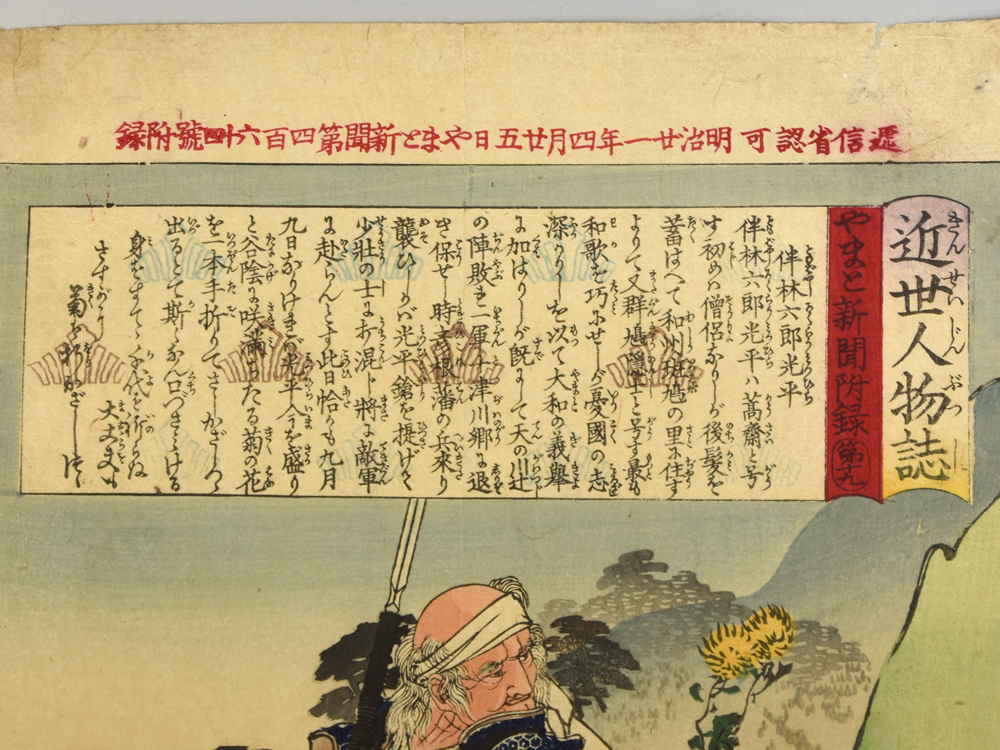 遞信省認可 明治廿一年四月廿五日やまと新聞第四百六十四號附録
近世人物誌
きんせいじんぶつし
やまと新聞附録 第十九
伴林六郎光平
伴林六郎光平ハ蒿齋と号
す初めハ僧侶なりしが後髪を
蓄はへて和州斑鳩の里に住す
よりて又群鳩隠士と号す最も
和歌を巧にせしが憂國の志
深かりしを以て大和の義舉
に加はりしが既にして天の川辻
の陣敗れ一軍十津川郷に退
き保せし時彦根藩の兵来り
襲ひしかバ光平鎗を提げて
少壮の士に打混じ將に敵軍
に赴らんとす此日恰かも九月
九日なりけれバ光平今を盛り
と谷陰に咲満ちたる菊の花
を一本手折りてさしかざしつゝ
出るとて斯くなん口づさみける
身をすてゝ千代を祈らぬ
大丈夫も
さすがに
菊を折かざしつゝ